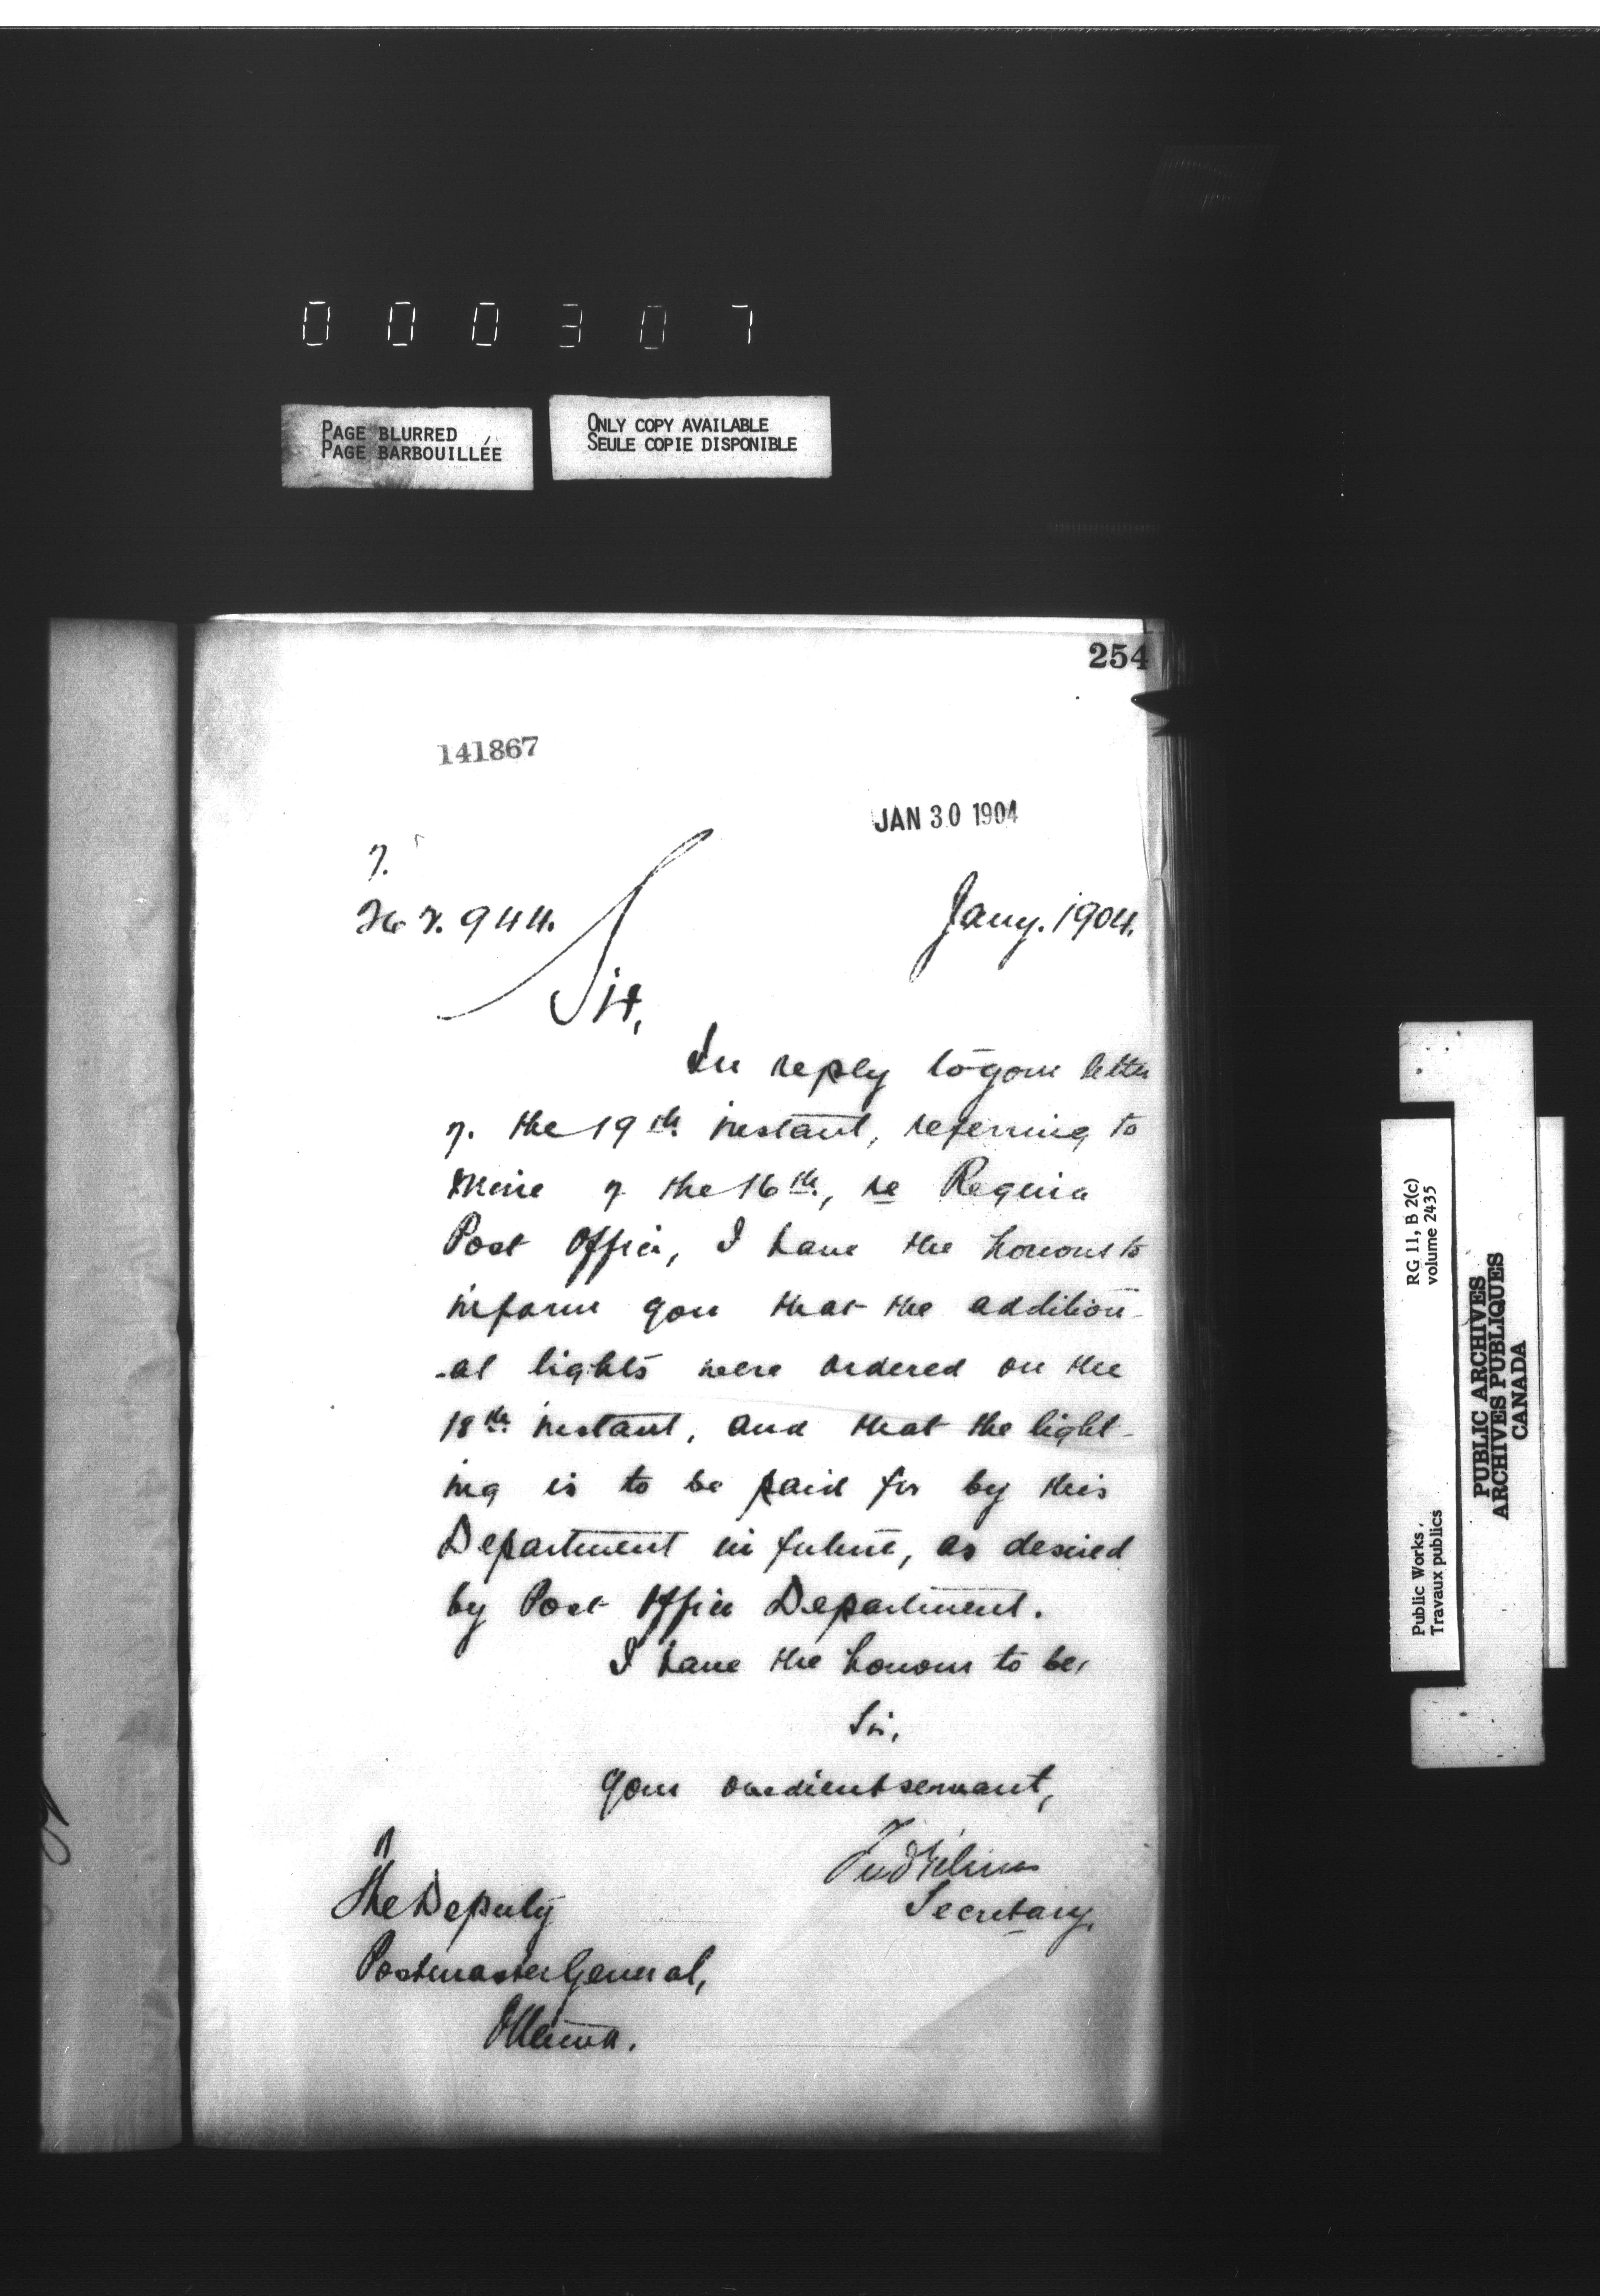 000307
PAGE BLURRED
PAGE BARBOUILLÉE
ONLY COPY AVAILABLE
SEULE COPIE DISPONIBLE
254
141867
JAN 30 1904
944.
Jany. 1904.
Sir,
In reply to your letter
of the 19th instant, referring to
mine of the 16th, re Regina
Post Office, I have the honour to
inform you that the addition-
-al lights were ordered on the
18th instant, and that the light-
ing is to be paid for by this
Department in future, as desired
by Post Office Department.
I have the honour to be,
Sir,
Your obedient servant,
Secretary.
The Deputy
Postmaster General,
Ottawa.
RG 11, B 2(c)
volume 2435
Public Works,
Travaux publics
PUBLIC ARCHIVES
ARCHIVES PUBLIQUES
CANADA